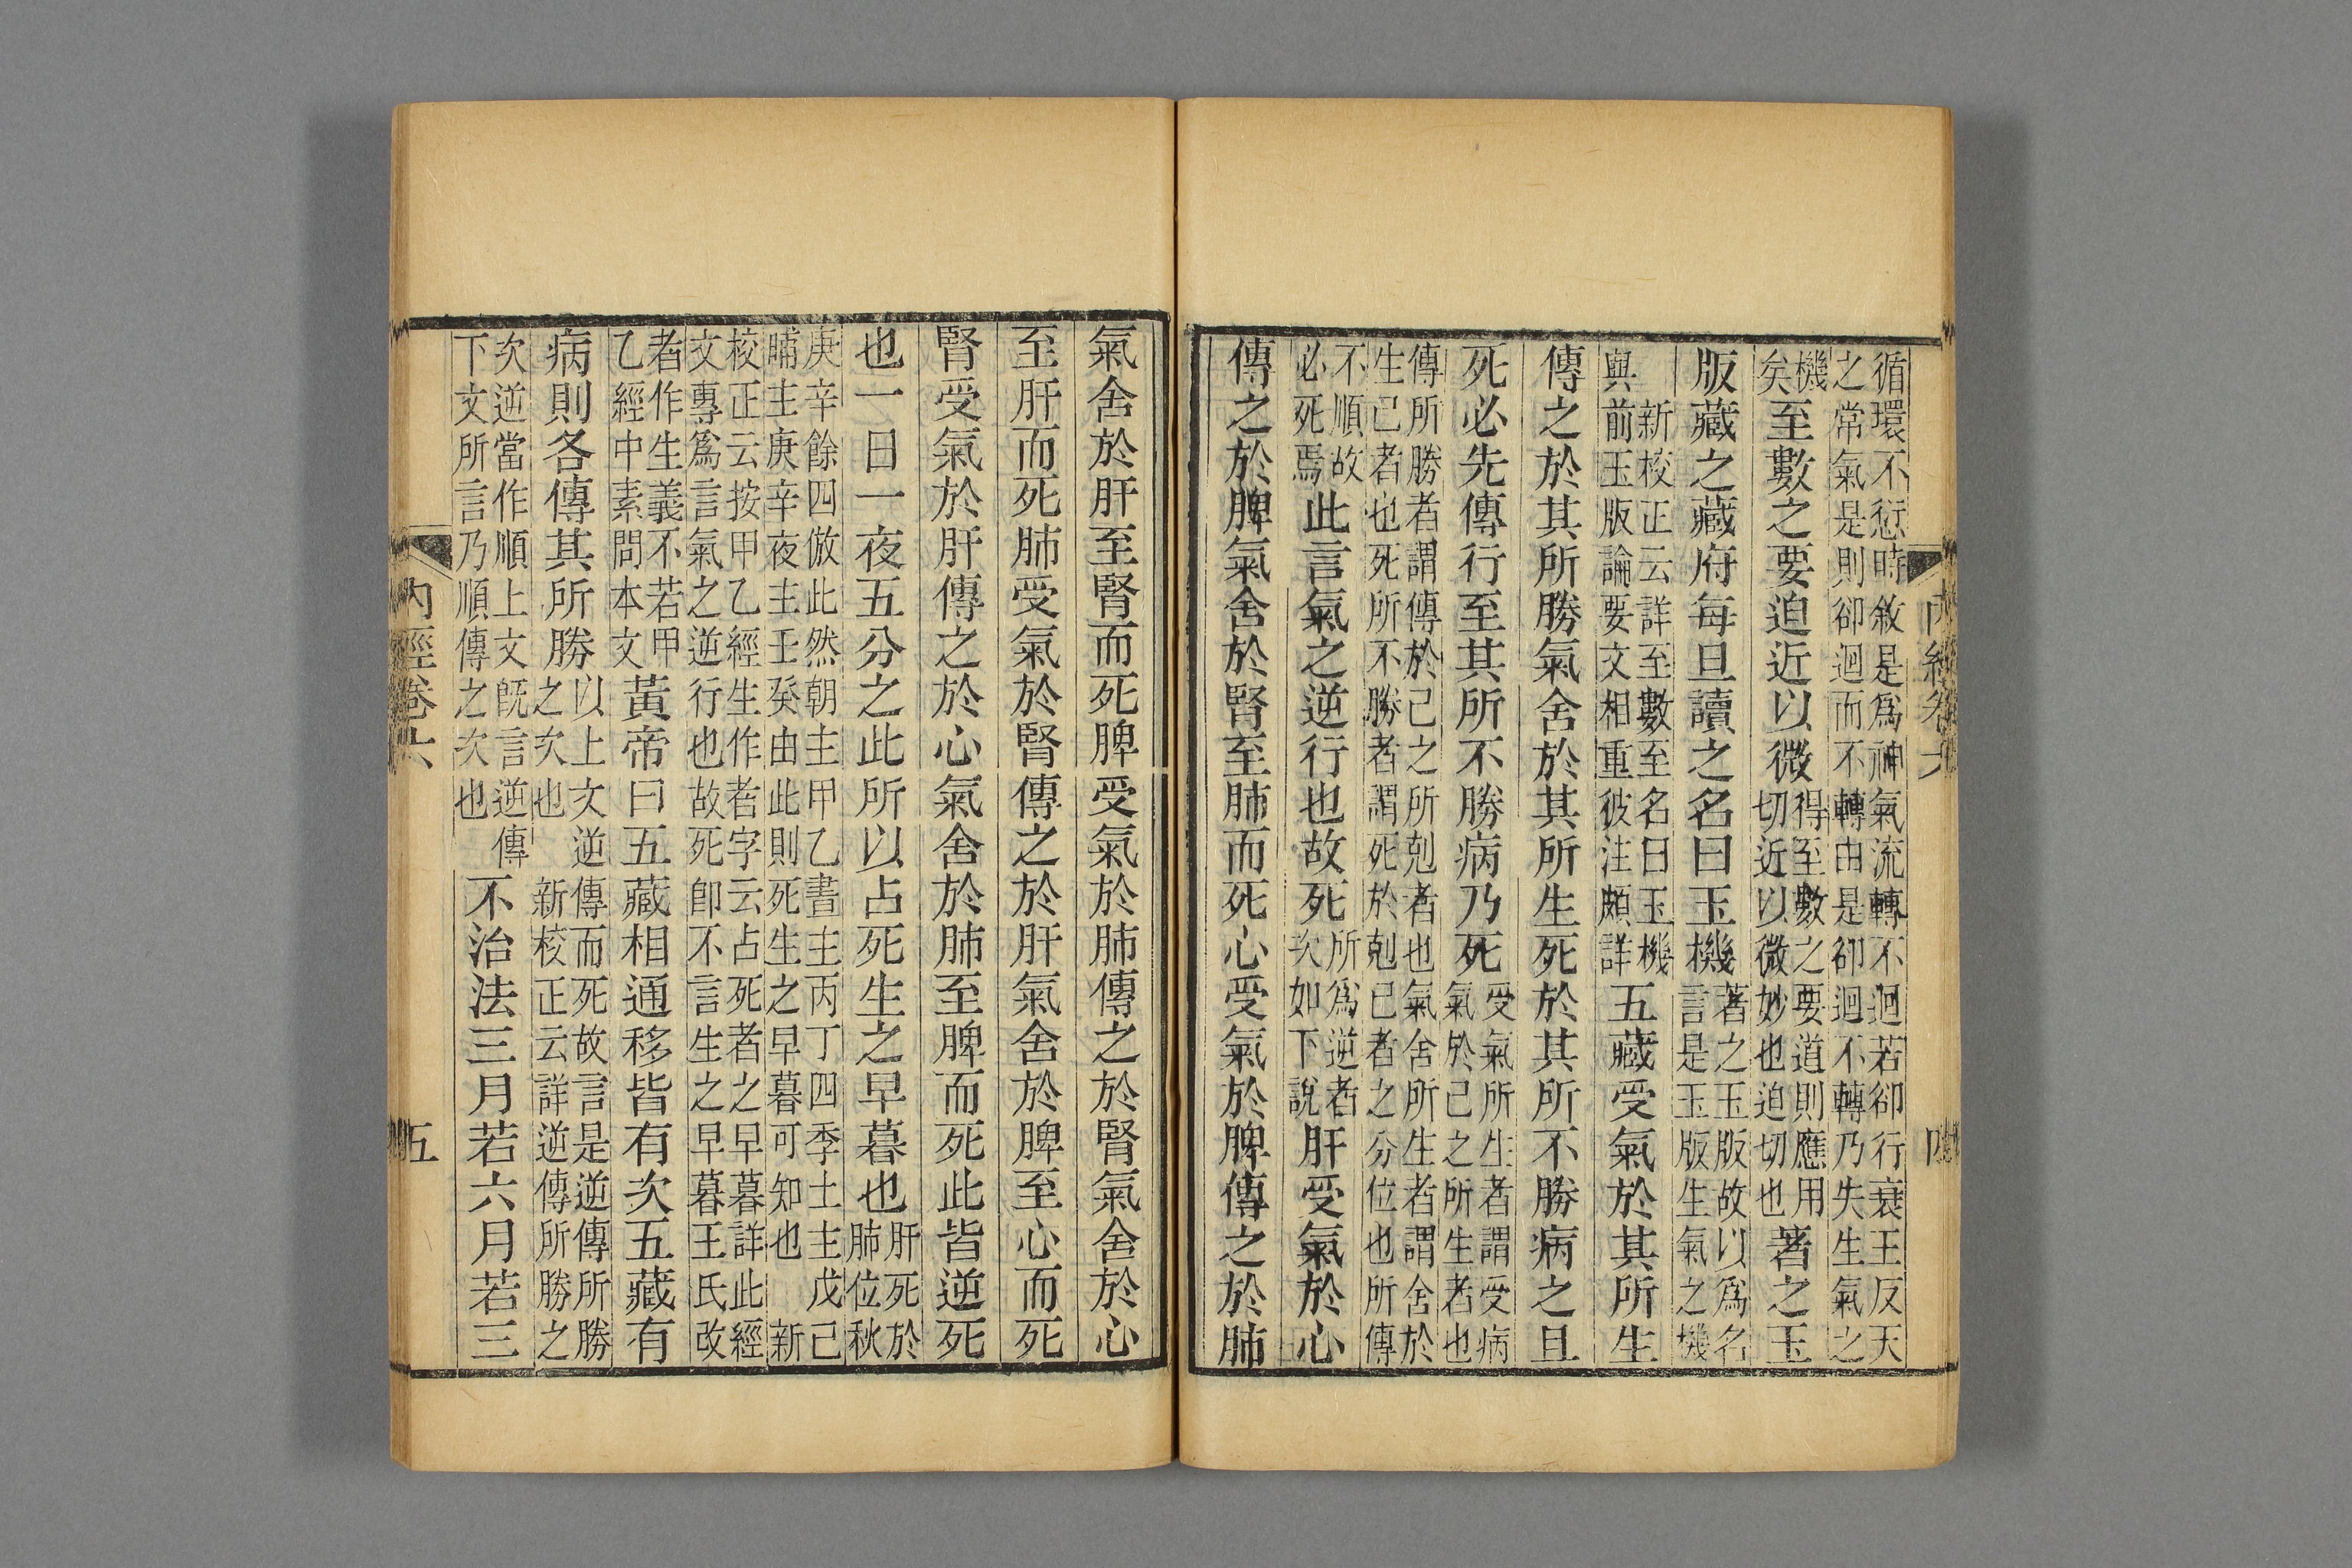 內經卷六
四
循環不愆時敘是爲神氣流轉不迴若卻行衰王反天
之常氣是則卻迴而不轉由是卻迴不轉乃失生氣之
機矣至數之要迫近以微得至數之要道則應用切近以微妙也迫切也著之玉
版藏之藏府每旦讀之名曰玉機著之玉版故以爲名言是玉版生氣之機
新校正云詳至數至名曰玉機與前玉版論要文相重彼注頗詳五藏受氣於其所生
傳之於其所勝氣舍於其所生死於其所不勝病之且
死必先傳行至其所不勝病乃死受氣所生者謂受病氣於己之所生者也
傳所勝者謂傳於己之所剋者也氣舍所生者謂舍於
生己者也死所不勝者謂死於剋己者之分位也所傳
不順故必死焉此言氣之逆行也故死所爲逆者次如下說肝受氣於心
傳之於脾氣舍於腎至肺而死心受氣於脾傳之於肺
氣舍於肝至腎而死脾受氣於肺傳之於腎氣舍於心
至肝而死肺受氣於腎傳之於肝氣舍於脾至心而死
腎受氣於肝傳之於心氣舍於肺至脾而死此皆逆死
也一日一夜五分之此所以占死生之早暮也肝死於肺位秋
庚辛餘四倣此然朝主甲乙晝主丙丁四季土主戊己
晡主庚辛夜主壬癸由此則死生之早暮可知也 新
校正云按甲乙經生作者字云占死者之早暮詳此經
文專爲言氣之逆行也故死卽不言生之早暮王氏改
者作生義不若甲乙經中素問本文黃帝曰五藏相通移皆有次五藏有
病則各傳其所勝以上文逆傳而死故言是逆傳所勝之次也 新校正云詳逆傳所勝之
次逆當作順上文旣言逆傳下文所言乃順傳之次也不治法三月若六月若三
內經卷六
五